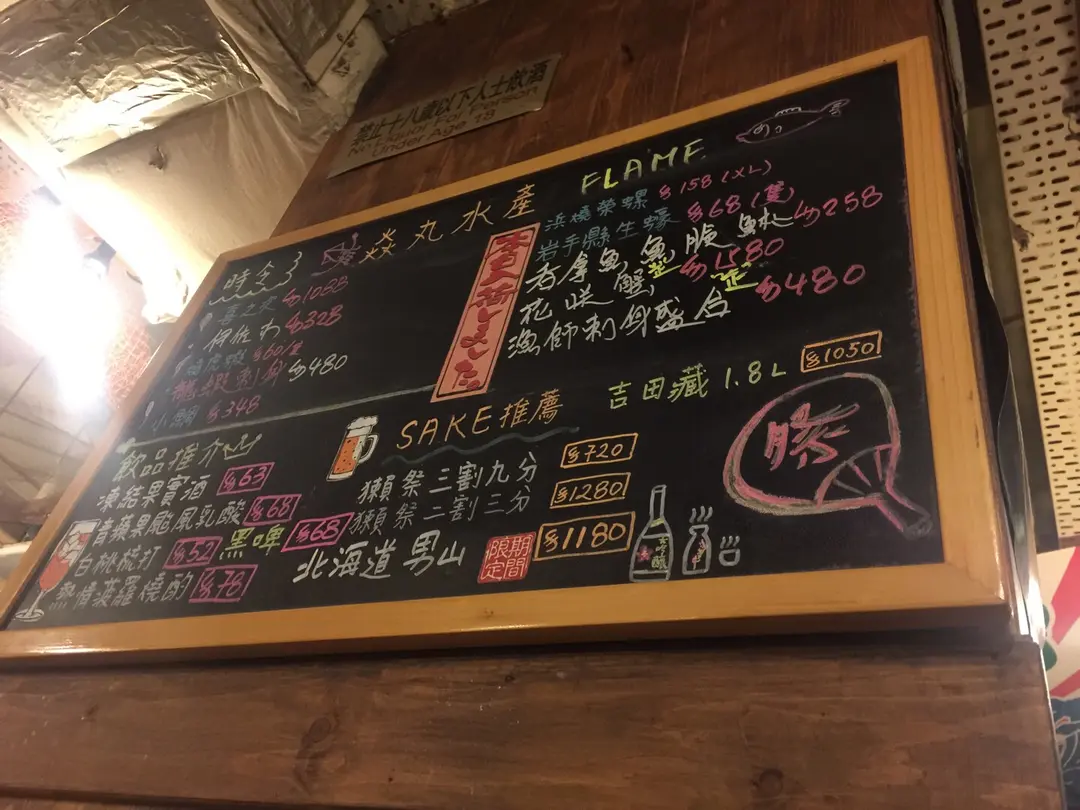 禁止十八歲以下人士飲酒
No Liquor For Person
Under Age 18
焱丸水產 FLAME
時令
$1088
伊佐木 $328
$60/隻
刺身 $480
小鯛 $348
本日入荷しました
浜燒榮螺 $158 (XL)
岩手縣生蠔 $68/隻
吞拿魚魚腩 $258
花咲蟹 $1580
漁師刺身盛合 $480
飲品推介
凍結果實酒 $63
青蘋果颱風乳酸 $68
白桃梳打 $52 黑啤 $68
熱情菠蘿燒酌 $78
SAKE推薦
吉田藏 1.8L $1050
獺祭三割九分 $720
獺祭二割三分 $1280
北海道男山 期間限定 $1180
勝